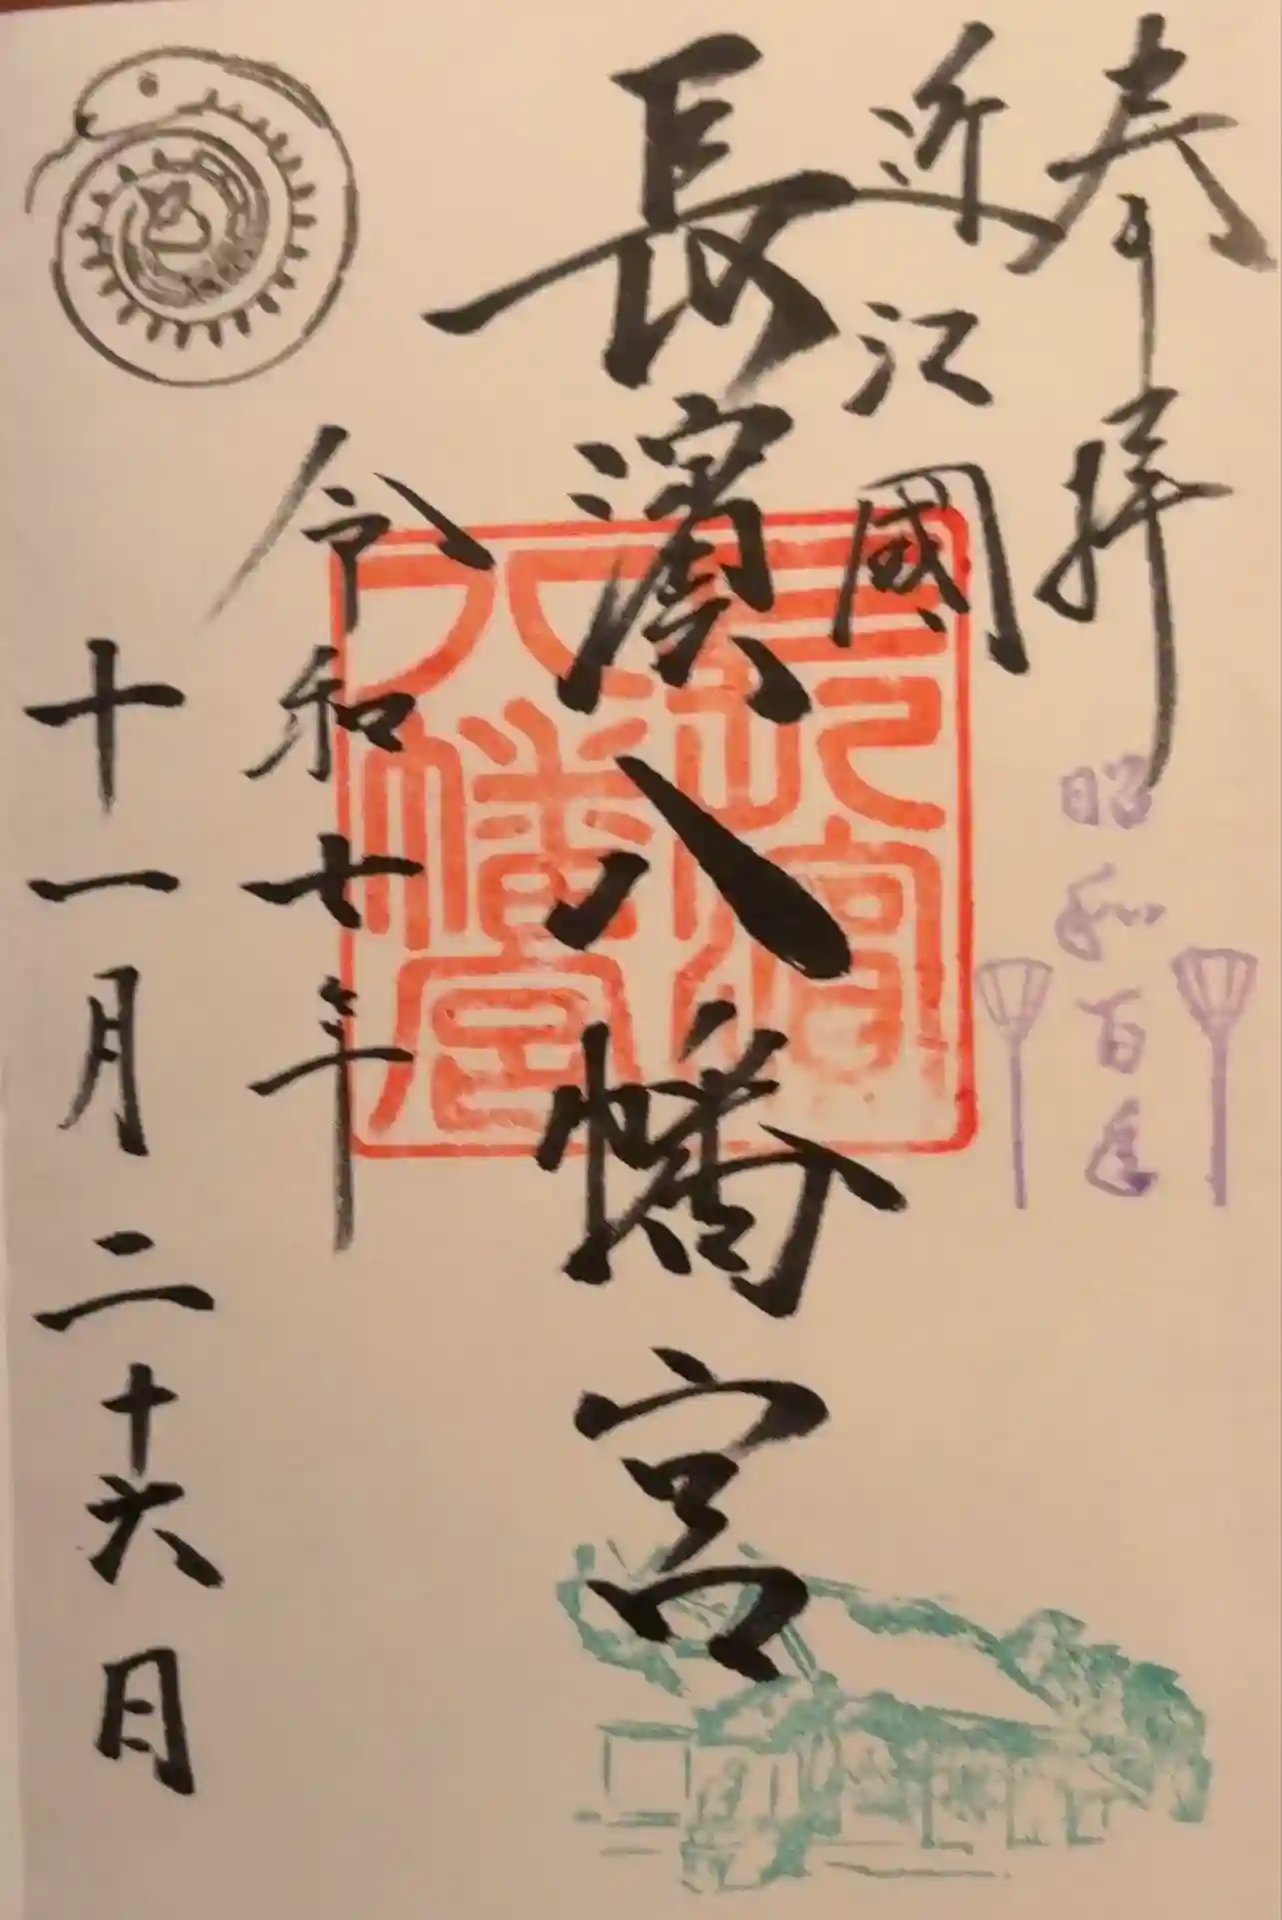 奉拝
昭和百年
近江國
長濱八幡宮
長濱
八幡宮
令和七年
十一月二十六日
巳